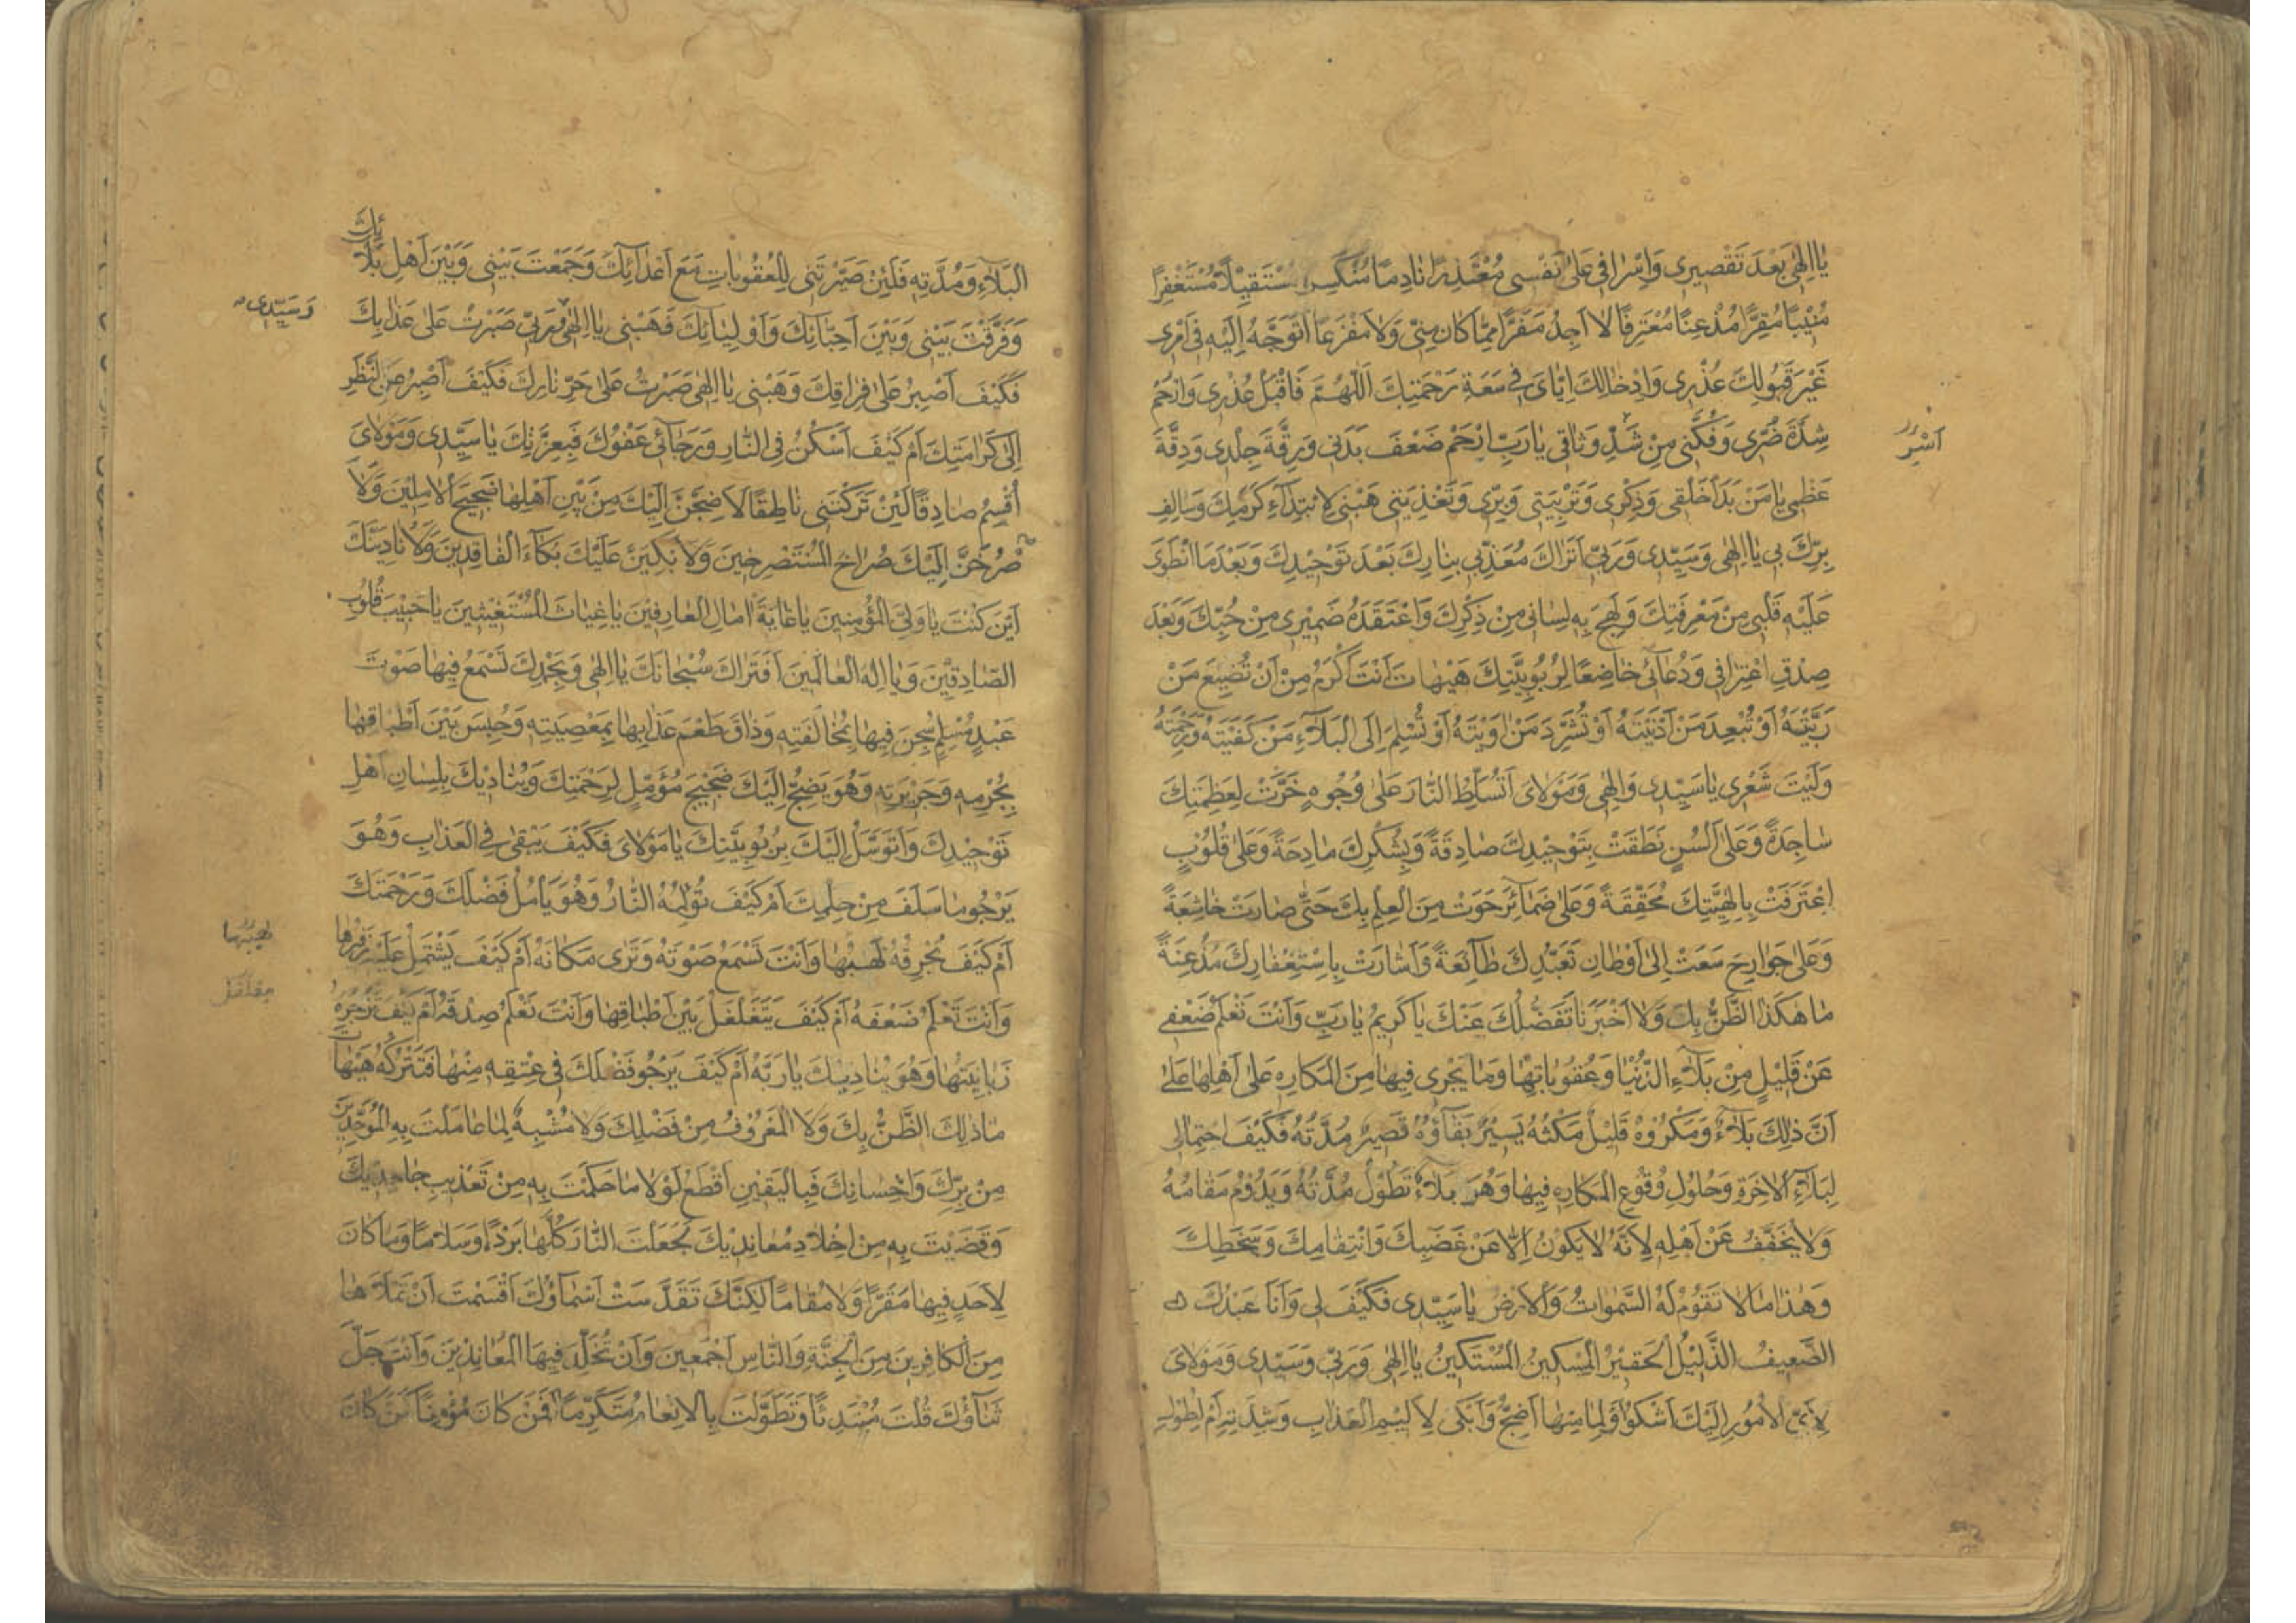 يٰا اِلٰهٰى بَعْدَ تَقْصِيرى وَاِسْرٰافى عَلىٰ نَفْسى مُعْتَذِرًا نٰادِمًا مُنْكَسِرًا مُسْتَقيٖلًا مُسْتَغْفِرًا
مُنيٖبًا مُقِرًّا مُذْعِنًا مُعْتَرِفًا لٰا اَجِدُ مَفَرًّا مِمّٰا كٰانَ مِنّى وَلٰا مَفْزَعًا اَتَوَجَّهُ اِلَيْهِ فى اَمْرى
غَيْرَ قَبُولِكَ عُذْرى وَاِدْخٰالِكَ اِيّٰاىَ فى سَعَةِ رَحْمَتِكَ اَللّٰهُمَّ فَاقْبَلْ عُذْرى وَارْحَمْ
شِدَّةَ ضُرّى وَفُكَّنى مِنْ شَدِّ وَثٰاقى يٰا رَبِّ اِرْحَمْ ضَعْفَ بَدَنى وَرِقَّةَ جِلْدى وَدِقَّةَ
اَسْرِ
عَظْمى يٰا مَنْ بَدَاَ خَلْقى وَذِكْرى وَتَرْبِيَتى وَبِرّى وَتَغْذِيَتى هَبْنى لِابْتِدٰآءِ كَرَمِكَ وَسٰالِفِ
بِرِّكَ بى يٰا اِلٰهٰى وَسَيِّدى وَرَبّى اَتُرٰاكَ مُعَذِّبى بِنٰارِكَ بَعْدَ تَوْحيٖدِكَ وَبَعْدَ مَا انْطَوىٰ
عَلَيْهِ قَلْبى مِنْ مَعْرِفَتِكَ وَلَهِجَ بِهِ لِسٰانى مِنْ ذِكْرِكَ وَاعْتَقَدَهُ ضَميٖرى مِنْ حُبِّكَ وَبَعْدَ
صِدْقِ اعْتِرٰافى وَدُعٰآئى خٰاضِعًا لِرُبُوبِيَّتِكَ هَيْهٰاتَ اَنْتَ اَكْرَمُ مِنْ اَنْ تُضَيِّعَ مَنْ
رَبَّيْتَهُ اَوْ تُبْعِدَ مَنْ اَدْنَيْتَهُ اَوْ تُشَرِّدَ مَنْ اٰوَيْتَهُ اَوْ تُسْلِمَ اِلَى الْبَلٰآءِ مَنْ كَفَيْتَهُ وَرَحِمْتَهُ
وَلَيْتَ شَعْرى يٰا سَيِّدى وَاِلٰهٰى وَمَوْلاٰىَ اَتُسَلِّطُ النّٰارَ عَلىٰ وُجُوهٍ خَرَّتْ لِعَظَمَتِكَ
سٰاجِدَةً وَعَلىٰ اَلْسُنٍ نَطَقَتْ بِتَوْحيٖدِكَ صٰادِقَةً وَبِشُكْرِكَ مٰادِحَةً وَعَلىٰ قُلُوبٍ
اِعْتَرَفَتْ بِاِلٰهِيَّتِكَ مُحَقِّقَةً وَعَلىٰ ضَمٰآئِرَ حَوَتْ مِنَ الْعِلْمِ بِكَ حَتّىٰ صٰارَتْ خٰاشِعَةً
وَعَلىٰ جَوٰارِحَ سَعَتْ اِلىٰ اَوْطٰانِ تَعَبُّدِكَ طٰآئِعَةً وَاَشٰارَتْ بِاسْتِغْفٰارِكَ مُذْعِنَةً
مٰا هٰكَذَا الظَّنُّ بِكَ وَلٰا اُخْبِرْنٰا بِفَضْلِكَ عَنْكَ يٰا كَريمُ يٰا رَبِّ وَاَنْتَ تَعْلَمُ ضَعْفى
عَنْ قَليٖلٍ مِنْ بَلٰآءِ الدُّنْيٰا وَعُقُوبٰاتِهٰا وَمٰا يَجْرى فيهٰا مِنَ الْمَكٰارِهِ عَلىٰ اَهْلِهٰا عَلىٰ
اَنَّ ذٰلِكَ بَلٰآءٌ وَمَكْرُوهٌ قَليٖلٌ مَكْثُهُ يَسيٖرٌ بَقٰآؤُهُ قَصيٖرٌ مُدَّتُهُ فَكَيْفَ احْتِمٰالى
لِبَلٰآءِ الْاٰخِرَةِ وَحُلُولِ وُقُوعِ الْمَكٰارِهِ فيهٰا وَهُوَ بَلٰآءٌ تَطُولُ مُدَّتُهُ وَيَدُومُ مَقٰامُهُ
وَلٰا يُخَفَّفُ عَنْ اَهْلِهِ لِاَنَّهُ لٰا يَكُونُ اِلّٰا عَنْ غَضَبِكَ وَانْتِقٰامِكَ وَسَخَطِكَ
وَهٰذٰا مٰا لٰا تَقُومُ لَهُ السَّمٰوٰاتُ وَالْاَرْضُ يٰا سَيِّدى فَكَيْفَ لى وَاَنَا عَبْدُكَ
الضَّعيفُ الذَّليٖلُ الْحَقيٖرُ الْمِسْكينُ الْمُسْتَكينُ يٰا اِلٰهٰى وَرَبّى وَسَيِّدى وَمَوْلاٰىَ
لِاَىِّ الْاُمُورِ اِلَيْكَ اَشْكُوا وَلِمٰا مِنْهٰا اَضِجُّ وَاَبْكى لِاَليٖمِ الْعَذٰابِ وَشِدَّتِهِ اَمْ لِطُولِ
الْبَلٰآءِ وَمُدَّتِهِ فَلَئِنْ صَيَّرْتَنى لِلْعُقُوبٰاتِ مَعَ اَعْدٰآئِكَ وَجَمَعْتَ بَيْنى وَبَيْنَ اَهْلِ بَلٰآئِكَ
وَفَرَّقْتَ بَيْنى وَبَيْنَ اَحِبّٰآئِكَ وَاَوْلِيٰآئِكَ فَهَبْنى يٰا اِلٰهٰى وَرَبّى صَبَرْتُ عَلىٰ عَذٰابِكَ
وَسَيِّدى
فَكَيْفَ اَصْبِرُ عَلىٰ فِرٰاقِكَ وَهَبْنى يٰا اِلٰهٰى صَبَرْتُ عَلىٰ حَرِّ نٰارِكَ فَكَيْفَ اَصْبِرُ عَنِ النَّظَرِ
اِلىٰ كَرٰامَتِكَ اَمْ كَيْفَ اَسْكُنُ فِى النّٰارِ وَرَجٰآئى عَفْوُكَ فَبِعِزَّتِكَ يٰا سَيِّدى وَمَوْلاٰىَ
اُقْسِمُ صٰادِقًا لَئِنْ تَرَكْتَنى نٰاطِقًا لَاَضِجَّنَّ اِلَيْكَ مِنْ بَيْنِ اَهْلِهٰا ضَجيٖجَ الْاٰمِليٖنَ وَلَاَ
صْرُخَنَّ اِلَيْكَ صُرٰاخَ الْمُسْتَصْرِخينَ وَلَاَبْكِيَنَّ عَلَيْكَ بُكٰآءَ الْفٰاقِدينَ وَلَاُنٰادِيَنَّكَ
اَيْنَ كُنْتَ يٰا وَلِىَّ الْمُؤْمِنينَ يٰا غٰايَةَ اٰمٰالِ الْعٰارِفيٖنَ يٰا غِيٰاثَ الْمُسْتَغيٖثينَ يٰا حَبيٖبَ قُلُوبِ
الصّٰادِقيٖنَ وَيٰا اِلٰهَ الْعٰالَمينَ اَفَتُرٰاكَ سُبْحٰانَكَ يٰا اِلٰهٰى وَبِحَمْدِكَ تَسْمَعُ فيهٰا صَوْتَ
عَبْدٍ مُسْلِمٍ سُجِنَ فيهٰا بِمُخٰالَفَتِهِ وَذٰاقَ طَعْمَ عَذٰابِهٰا بِمَعْصِيَتِهِ وَحُبِسَ بَيْنَ اَطْبٰاقِهٰا
بِجُرْمِهِ وَجَريٖرَتِهِ وَهُوَ يَضِجُّ اِلَيْكَ ضَجيٖجَ مُؤَمِّلٍ لِرَحْمَتِكَ وَيُنٰاديٖكَ بِلِسٰانِ اَهْلِ
تَوْحيٖدِكَ وَاَتَوَسَّلُ اِلَيْكَ بِرُبُوبِيَّتِكَ يٰا مَوْلاٰىَ فَكَيْفَ يَبْقىٰ فِى الْعَذٰابِ وَهُوَ
يَرْجُو مٰا سَلَفَ مِنْ حِلْمِكَ اَمْ كَيْفَ تُؤْلِمُهُ النّٰارُ وَهُوَ يَأْمُلُ فَضْلَكَ وَرَحْمَتَكَ
اَمْ كَيْفَ تُحْرِقُهُ لَهَبُهٰا وَاَنْتَ تَسْمَعُ صَوْتَهُ وَتَرىٰ مَكٰانَهُ اَمْ كَيْفَ يَشْتَمِلُ عَلَيْهِ زَفيرُهٰا
لهيبُهٰا
وَاَنْتَ تَعْلَمُ ضَعْفَهُ اَمْ كَيْفَ يَتَغَلْغَلُ بَيْنَ اَطْبٰاقِهٰا وَاَنْتَ تَعْلَمُ صِدْقَهُ اَمْ كَيْفَ تَزْجُرُهُ
زَبٰانِيَتُهٰا وَهُوَ يُنٰاديٖكَ يٰا رَبَّهُ اَمْ كَيْفَ يَرْجُو فَضْلَكَ فى عِتْقِهِ مِنْهٰا فَتَتْرُكُهُ هَيْهٰاتَ
مٰا ذٰلِكَ الظَّنُّ بِكَ وَلَا الْمَعْرُوفُ مِنْ فَضْلِكَ وَلٰا مُشْبِهٌ لِمٰا عٰامَلْتَ بِهِ الْمُوَحِّدينَ
مِنْ بِرِّكَ وَاِحْسٰانِكَ فَبِالْيَقيٖنِ اَقْطَعُ لَوْلٰا مٰا حَكَمْتَ بِهِ مِنْ تَعْذيبِ جٰاحِديٖكَ
وَقَضَيْتَ بِهِ مِنْ اِخْلٰادِ مُعٰانِديٖكَ لَجَعَلْتَ النّٰارَ كُلَّهٰا بَرْدًا وَسَلٰامًا وَمٰا كٰانَ
لِاَحَدٍ فيهٰا مَقَرًّا وَلٰا مُقٰامًا لٰكِنَّكَ تَقَدَّسَتْ اَسْمٰآؤُكَ اَقْسَمْتَ اَنْ تَمْلَاَهٰا
مِنَ الْكٰافِرينَ مِنَ الْجِنَّةِ وَالنّٰاسِ اَجْمَعينَ وَاَنْ تُخَلِّدَ فيهَا الْمُعٰانِديٖنَ وَاَنْتَ جَلَّ
ثَنٰآؤُكَ قُلْتَ مُبْتَدِئًا وَتَطَوَّلْتَ بِالْاِنْعٰامِ مُتَكَرِّمًا اَفَمَنْ كٰانَ مُؤْمِنًا كَمَنْ كٰانَ